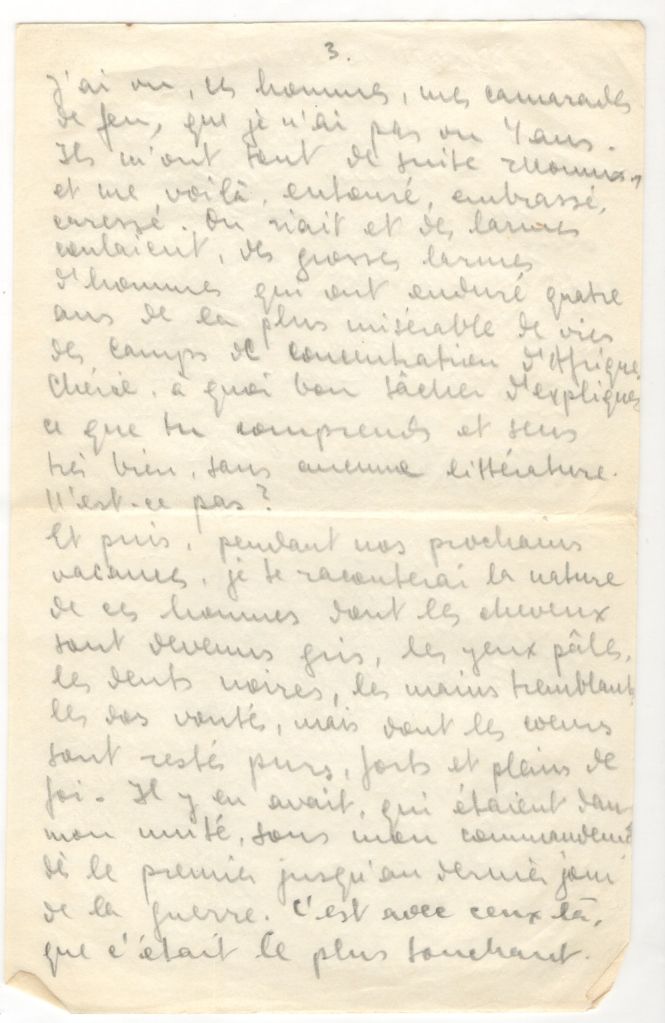 3.
j'ai vu, ces hommes, mes camarades
de feu, que je n'ai pas vu 4 ans.
Ils m'ont tout de suite reconnus,
et me voilà, entouré, embrassé,
caressé. On riait et des larmes
coulaient, des grosses larmes
d'hommes qui ont enduré quatre
ans de la plus misérable de vies
des camps de concentration d'Afrique.
Chérie, à quoi bon tâcher d'expliquer
ce que tu comprends et sens
très bien, sans aucune littérature.
N'est-ce pas?
Et puis, pendant nos prochains
vacances, je te raconterai la nature
de ces hommes dont les cheveux
sont devenus gris, les yeux pâles,
les dents noires, les mains tremblants,
les dos voutés, mais dont les cœurs
sont restés purs, forts et pleins de
foi. Il y en avait, qui étaient dans
mon unité, sous mon commandement
dès le premier jusqu'au dernier jour
de la guerre. C'est avec ceux là,
que c'était le plus touchant.